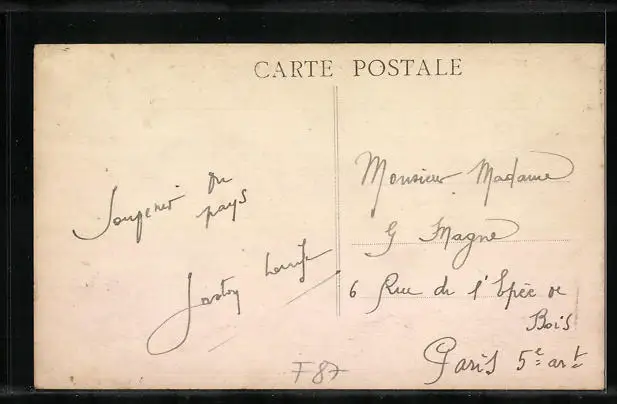 CARTE POSTALE
Souvenir du
pays
Monsieur Madame
G Magne
6 Rue de l'Epée de
Bois
Paris 5e art
F 87